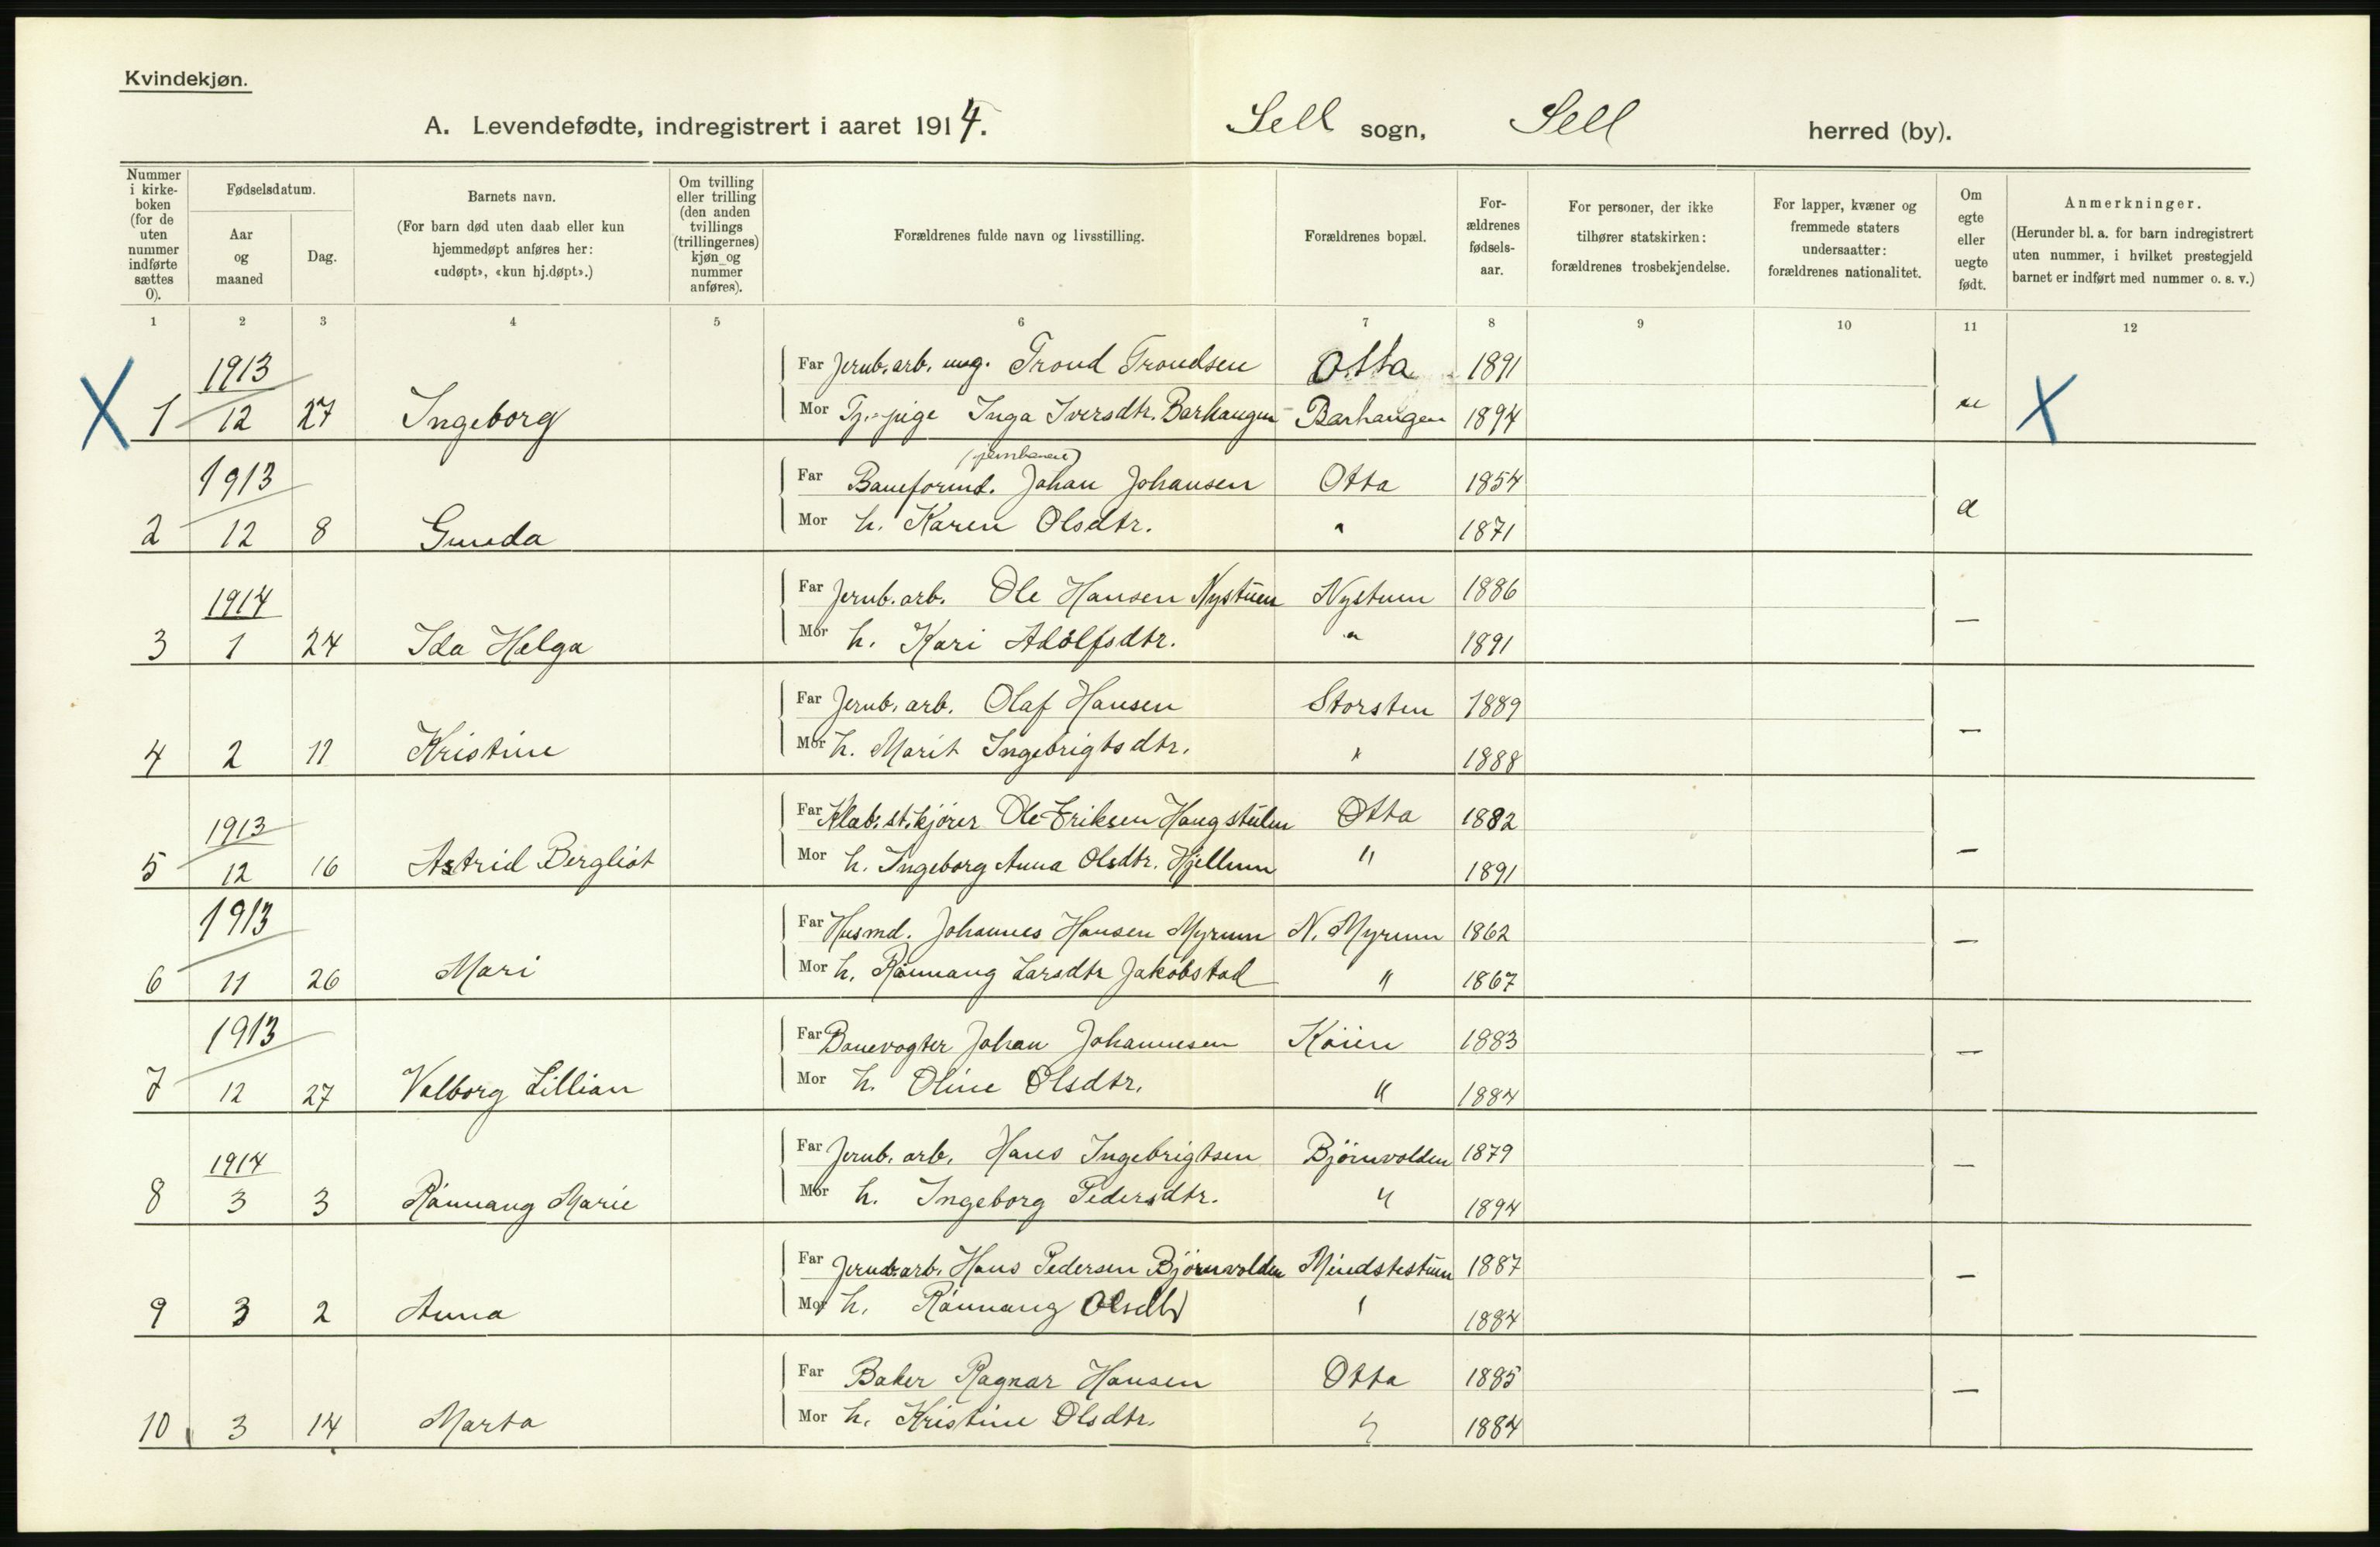 Kvindekjøn.
A. Levendefødte, indregistrert i aaret 1914. Sell sogn, Sell herred (by).
Nummer i kirke-boken (for de uten nummer indførte sættes 0).
Fødselsdatum.
Aar og maaned
Dag.
Barnets navn.
(For barn død uten daab eller kun hjemmedøpt anføres her: «udøpt», «kun hj.døpt».)
Om tvilling eller trilling (den anden tvillings (trillingernes) kjøn og nummer anføres).
Forældrenes fulde navn og livsstilling.
Forældrenes bopæl.
For-ældrenes fødsels-aar.
For personer, der ikke tilhører statskirken: forældrenes trosbekjendelse.
For lapper, kvæner og fremmede staters undersaatter: forældrenes nationalitet.
Om egte eller uegte født.
Anmerkninger.
(Herunder bl. a. for barn indregistrert uten nummer, i hvilket prestegjeld barnet er indført med nummer o. s. v.)
1 2 3 4 5 6 7 8 9 10 11 12
1913 Far Jernb. arb. ung. Trond Trondsen Otta 1891
X 1 12 27 Ingeborg Mor Tj.-pige Inga Iversdtr. Barhaugen Barhaugen 1894 ue X
(jernbanen)
1913 Far Baneformd. Johan Johansen Otta 1854
2 12 8 Gunda Mor h. Karen Olsdtr. " 1871 e
1914 Far Jernb. arb. Ole Hansen Nystuen Nystuen 1886
3 1 24 Ida Helga Mor h. Kari Adolfsdtr. " 1891 —
Far Jernb. arb. Olaf Hansen Storsten 1889
4 2 11 Kristine Mor h. Marit Ingebrigtsdtr. " 1888 —
1913 Far Ole Eriksen Haugstulen Otta 1882
5 12 16 Astrid Bergliot Mor h. Ingeborg Anna Olsdtr. Hjellum " 1891 —
1913 Far Husmd. Johannes Hansen Myrum N. Myrum 1862
6 11 26 Mari Mor h. Rønnaug Larsdtr Jakobstad " 1867 —
1913 Far Banevogter Johan Johannesen Köien 1883
7 12 27 Valborg Lillian Mor h. Oline Olsdtr. " 1884 —
1914 Far Jernb. arb. Hans Ingebrigtsen Björnvolden 1879
8 3 3 Rönnaug Marie Mor h. Ingeborg Pedersdtr. " 1894 —
Far Jernb. arb. Hans Pedersen Björnvolden Mindstestuen 1887
9 3 2 Anna Mor h. Rönnaug Olsdtr " 1884 —
Far Baker Ragnar Hansen Otta 1885
10 3 14 Marta Mor h. Kristine Olsdtr. " 1884 —